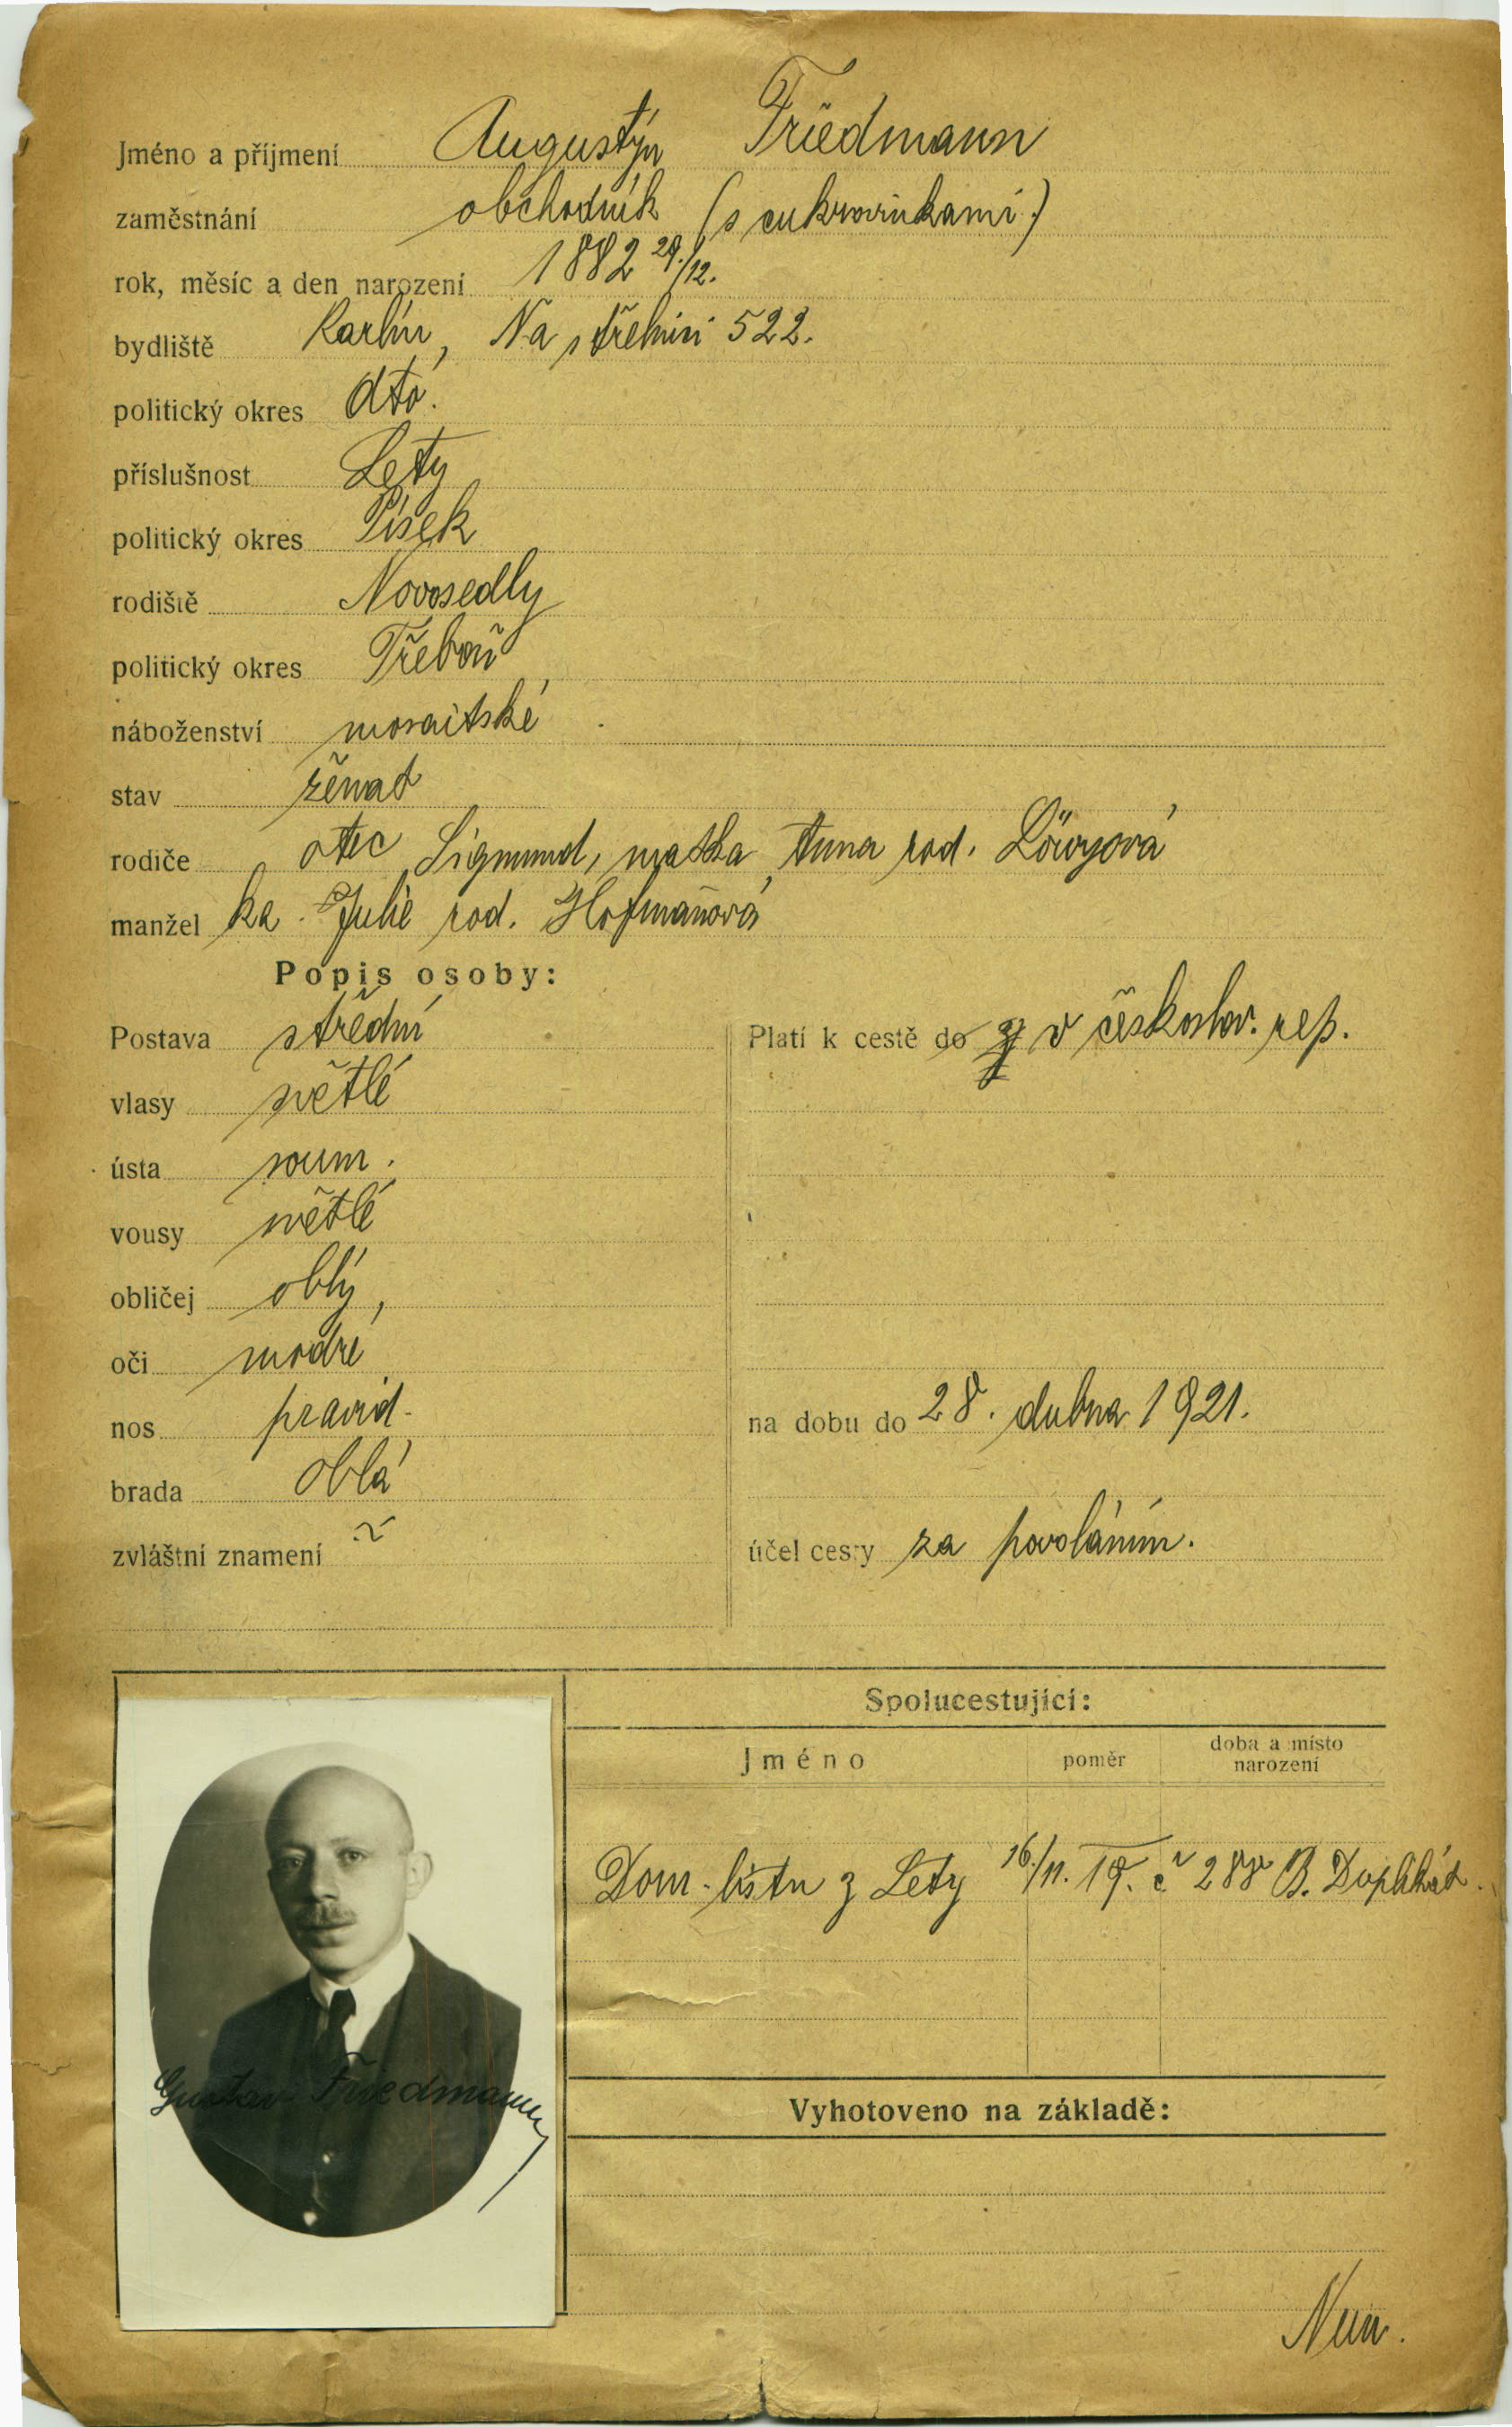 Jméno a příjmení Augustýn Friedmann
zaměstnání obchodník (s cukrovinkami)
rok, měsíc a den narození 1882 29./12.
bydliště Karlín, Na střelnici 522.
politický okres dto.
příslušnost Lety
politický okres Písek
rodiště Novosedly
politický okres Třeboň
náboženství mosaitské
stav ženat
rodiče otec Sigmund, matka Anna rod. Löwyová
manžel ka Julie rod. Hofmanová
Popis osoby:
Postava střední
Platí k cestě do v českoslov. rep.
vlasy světlé
ústa soum.
vousy světlé
obličej oblý,
oči modré
nos pravid.
na dobu do 28. dubna 1921.
brada oblá
zvláštní znamení
účel cesty za povoláním.
Spolucestující:
Jméno poměr doba a místo narození
Dom. listu z Lety 16./11. 19. č 288 B.
Gustav Friedmann
Vyhotoveno na základě: